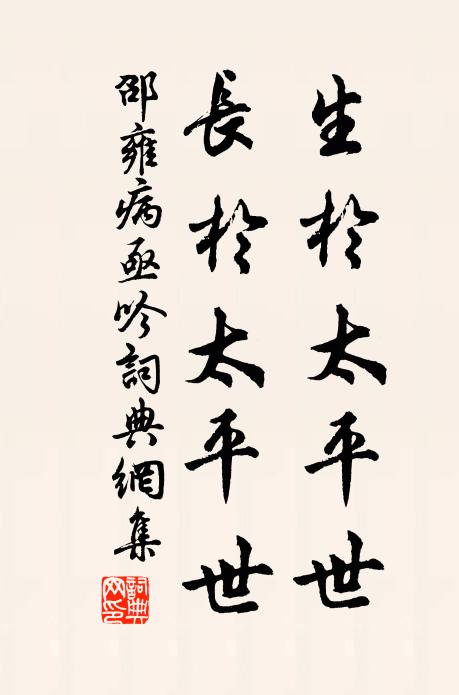 生於太平世
長於太平世
邵雍病亟吟詞典網集
詞典網印